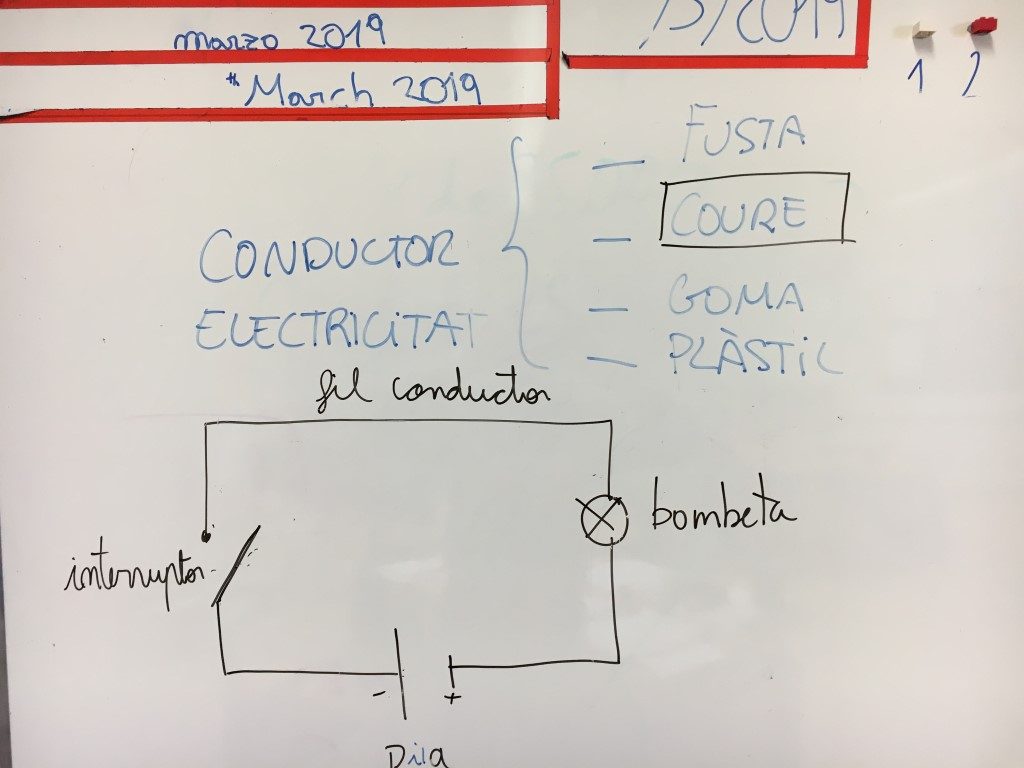 marzo 2019
th March 2019
/2019
1 2
CONDUCTOR
ELECTRICITAT
- FUSTA
- COURE
- GOMA
- PLÀSTIC
fil conductor
interruptor
bombeta
- +
Pila